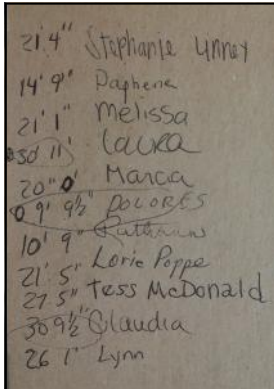 21' 4" Stephanie Unney
14' 9" Daphene
21' 1" Melissa
30' 11' Laura
20" 0' Marcia
0 9' 9½" DOLORES
10' 9" Ruthann
21' 5" Lorie Poppe
27 5" Tess McDonald
30 9½" Claudia
26 1' Lynn